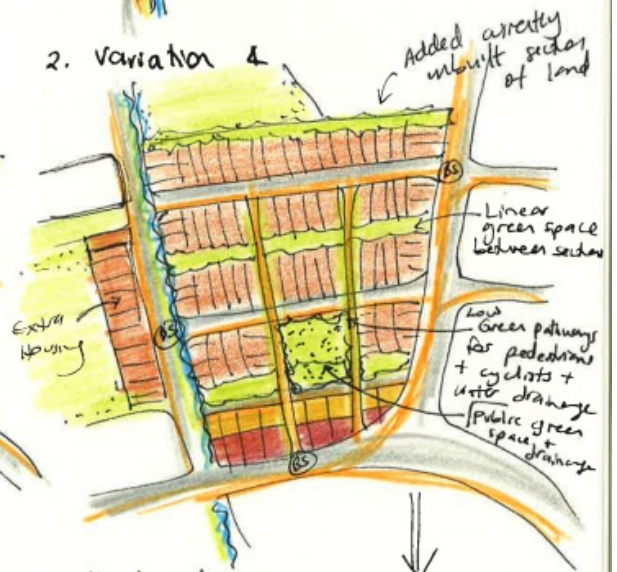 2. Variation &
Added currently
unbuilt section
of land
BS
Linear
green space
between section
Extra
Housing
BS
Low
Green pathways
for pedestrians
+ cyclists +
water drainage
Public green
space +
drainage
BS